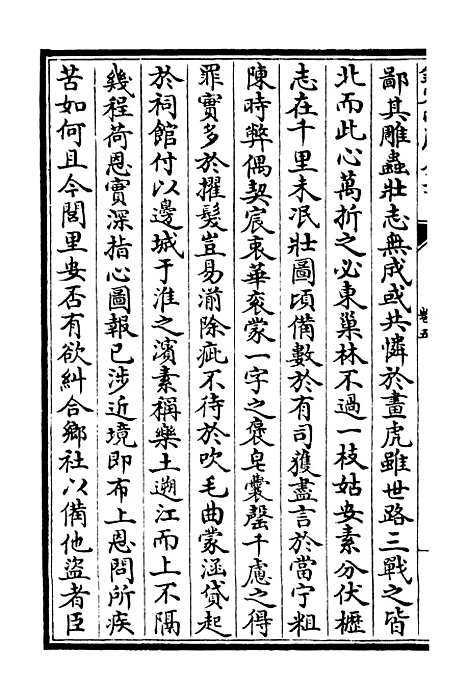 鄙其雕蟲壯志無成或共憐於畫虎雖世路三戰之皆
北而此心萬折之必東巢林不過一枝姑安素分伏櫪
志在千里未泯壯圖頃備數於有司獲盡言於當宁粗
陳時弊偶契宸衷華衮蒙一字之褒皂囊罄千慮之得
罪實多於擢髮豈易湔除疵不待於吹毛曲蒙涵貸起
於祠館付以邊城于淮之濱素稱樂土遡江而上不隔
幾程荷恩實深指心圖報已涉近境即布上恩問所疾
苦如何且今閭里安否有欲糾合鄉社以備他盜者臣
卷五